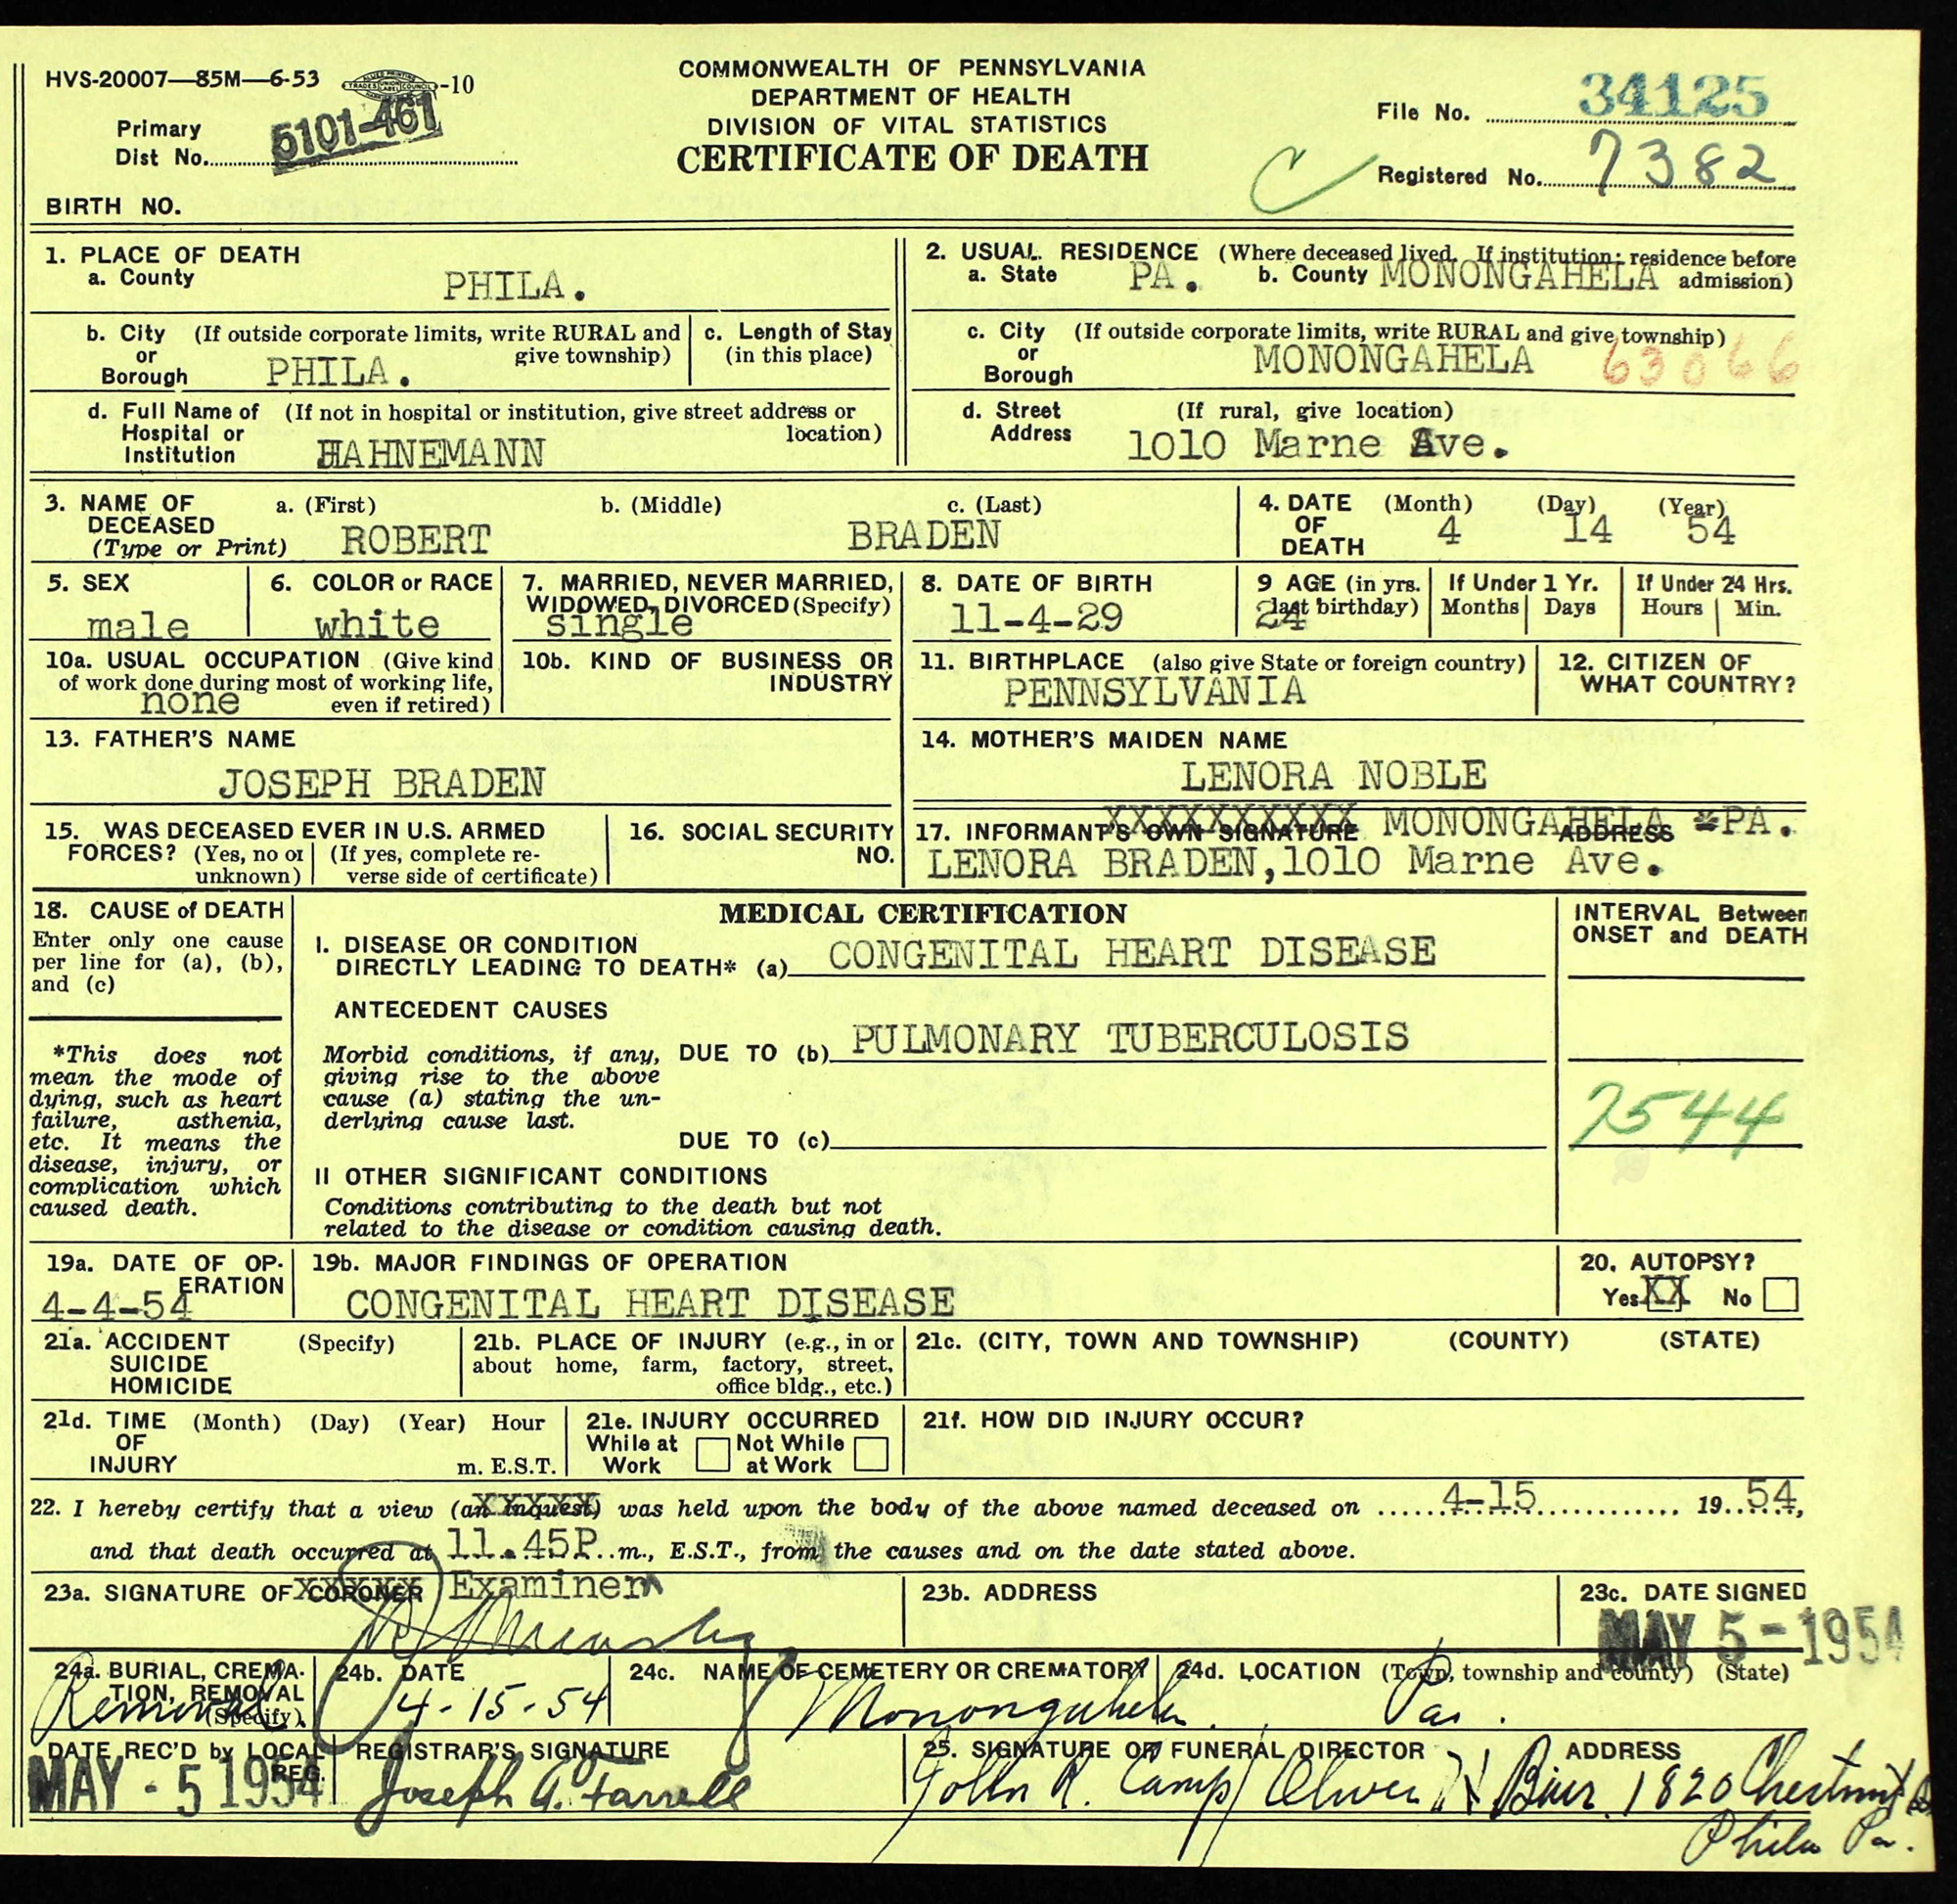 HVS-20007—85M—6-53 -10
COMMONWEALTH OF PENNSYLVANIA
DEPARTMENT OF HEALTH
DIVISION OF VITAL STATISTICS
CERTIFICATE OF DEATH
Primary
Dist No. 5101-461
File No. 34125
C
Registered No. 7382
BIRTH NO.
1. PLACE OF DEATH
a. County PHILA.
b. City (If outside corporate limits, write RURAL and
or give township)
Borough PHILA.
c. Length of Stay
(in this place)
d. Full Name of (If not in hospital or institution, give street address or
Hospital or location)
Institution HAHNEMANN
2. USUAL RESIDENCE (Where deceased lived. If institution: residence before
a. State PA. b. County MONONGAHELA admission)
c. City (If outside corporate limits, write RURAL and give township)
or MONONGAHELA 63066
Borough
d. Street (If rural, give location)
Address 1010 Marne Ave.
3. NAME OF a. (First) b. (Middle) c. (Last)
DECEASED
(Type or Print) ROBERT BRADEN
4. DATE (Month) (Day) (Year)
OF 4 14 54
DEATH
5. SEX
male
6. COLOR or RACE
white
7. MARRIED, NEVER MARRIED,
WIDOWED, DIVORCED (Specify)
single
8. DATE OF BIRTH
11-4-29
9 AGE (in yrs.
last birthday)
24
If Under 1 Yr.
Months Days
If Under 24 Hrs.
Hours Min.
10a. USUAL OCCUPATION (Give kind
of work done during most of working life,
none even if retired)
10b. KIND OF BUSINESS OR
INDUSTRY
11. BIRTHPLACE (also give State or foreign country)
PENNSYLVANIA
12. CITIZEN OF
WHAT COUNTRY?
13. FATHER'S NAME
JOSEPH BRADEN
14. MOTHER'S MAIDEN NAME
LENORA NOBLE
15. WAS DECEASED EVER IN U.S. ARMED
FORCES? (Yes, no or (If yes, complete re-
unknown) verse side of certificate)
16. SOCIAL SECURITY
NO.
17. INFORMANT'S OWN SIGNATURE XXXXXXXXXX MONONGAHELA PA. ADDRESS
LENORA BRADEN, 1010 Marne Ave.
18. CAUSE of DEATH
Enter only one cause
per line for (a), (b),
and (c)
*This does not
mean the mode of
dying, such as heart
failure, asthenia,
etc. It means the
disease, injury, or
complication which
caused death.
MEDICAL CERTIFICATION
I. DISEASE OR CONDITION
DIRECTLY LEADING TO DEATH* (a) CONGENITAL HEART DISEASE
ANTECEDENT CAUSES
Morbid conditions, if any, DUE TO (b) PULMONARY TUBERCULOSIS
giving rise to the above
cause (a) stating the un-
derlying cause last.
DUE TO (c)
II OTHER SIGNIFICANT CONDITIONS
Conditions contributing to the death but not
related to the disease or condition causing death.
INTERVAL Between
ONSET and DEATH
7544
19a. DATE OF OP-
ERATION
4-4-54
19b. MAJOR FINDINGS OF OPERATION
CONGENITAL HEART DISEASE
20. AUTOPSY?
Yes XX No
21a. ACCIDENT (Specify)
SUICIDE
HOMICIDE
21b. PLACE OF INJURY (e.g., in or
about home, farm, factory, street,
office bldg., etc.)
21c. (CITY, TOWN AND TOWNSHIP) (COUNTY) (STATE)
21d. TIME (Month) (Day) (Year) Hour
OF
INJURY m. E.S.T.
21e. INJURY OCCURRED
While at Not While
Work at Work
21f. HOW DID INJURY OCCUR?
22. I hereby certify that a view (an inquest) XXXXX was held upon the body of the above named deceased on 4-15 19 54,
and that death occurred at 11.45P. m., E.S.T., from the causes and on the date stated above.
23a. SIGNATURE OF CORONER XXXXX Examiner
23b. ADDRESS
23c. DATE SIGNED
MAY 5 - 1954
24a. BURIAL, CREMA-
TION, REMOVAL
(Specify)
Removal
24b. DATE
4-15-54
24c. NAME OF CEMETERY OR CREMATORY
24d. LOCATION (Town, township and county) (State)
Monongahela. Pa.
DATE REC'D by LOCAL
REG.
MAY - 5 1954
REGISTRAR'S SIGNATURE
Joseph A. Farrell
25. SIGNATURE OF FUNERAL DIRECTOR ADDRESS
John R. Camp / Oliver H Bair. 1820 Chestnut
Phila Pa.